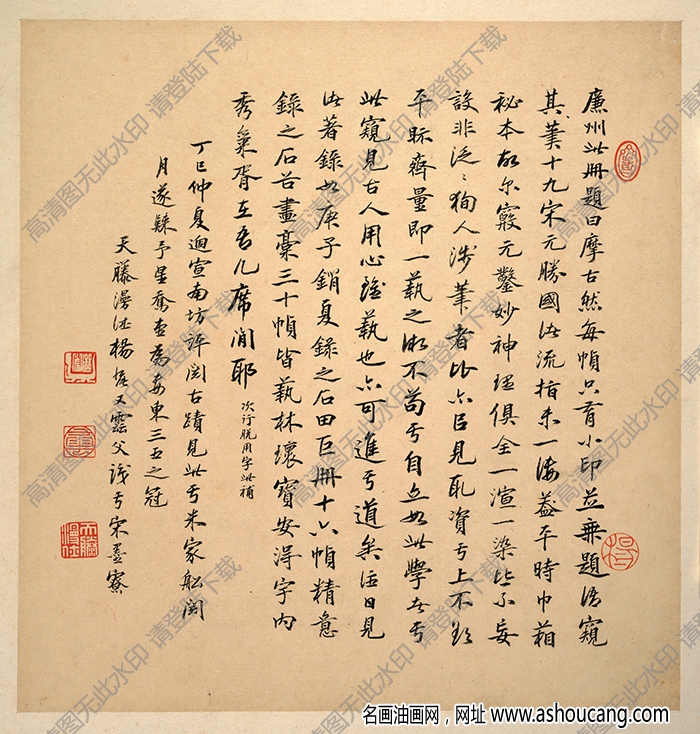 廉州此册題曰摩古然每幀只有小印並乗題語窺
其葉十九宋元勝國法流指未一海蓋平時巾箱
秘本故尔竅元鑿妙神理俱全一渲一染皆不妄
設非泛ミ狥人涉筆者比亦足見取資于上不欲
平眎齊量即一藝之微不苟于自立如此學者于
此窺見古人用心雖藝也亦可進于道矣往日見
法著錄如庚子銷夏錄之石田巨册十六幀精意
錄之石谷畫稾三十幀皆藝林瓌寶安得宇内
秀氣胥在吾几席閒耶
次行脱用字此補
丁巳仲夏過宣南坊評閱古蹟見此于米家舩閱
月遂歸予星奪查為婁東三五之冠
天滕漫法楊 又雲父識于宋墨寮
高清图无此水印 请登陆下载
名画油画网，网址 www.ashoucang.com